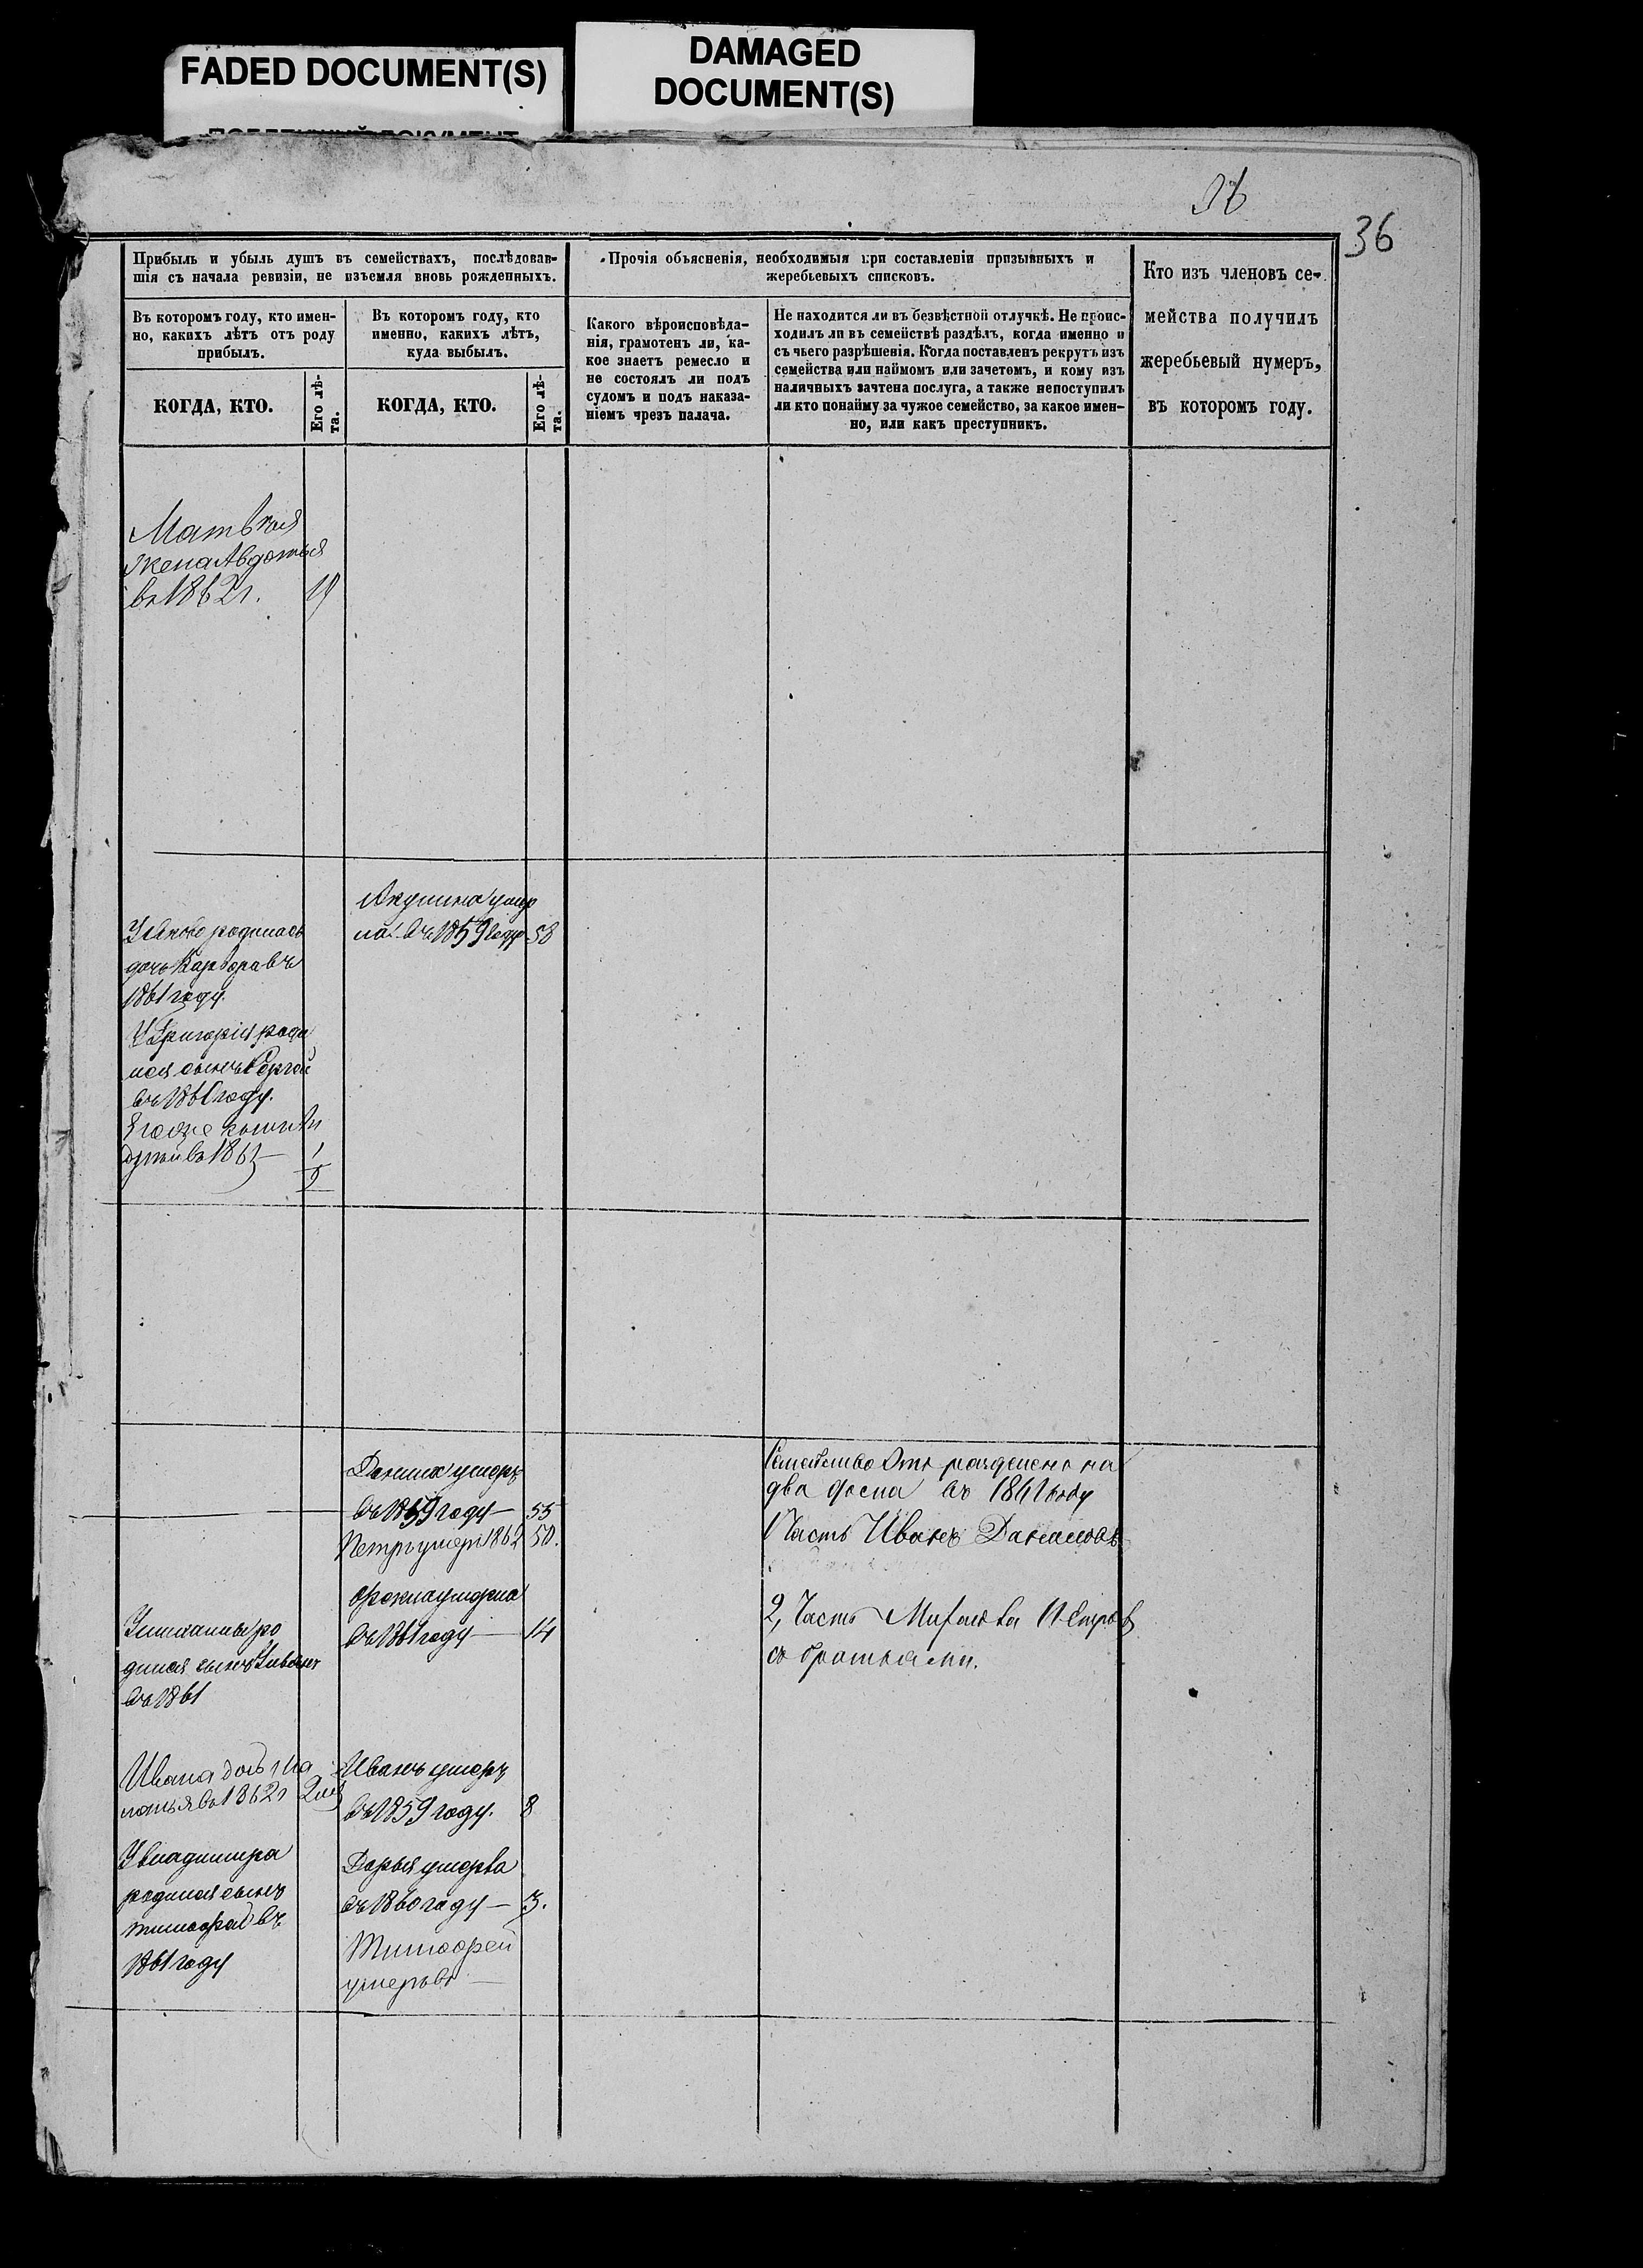 FADED DOCUMENT(S)
DAMAGED
DOCUMENT(S)
36
36
Прибыль и убыль душъ въ семействахъ, послѣдовав-
шія съ начала ревизіи, не изъемля вновь рожденныхъ.
Прочія объясненія, необходимыя при составленіи призывныхъ и
жеребьевыхъ списковъ.
Кто изъ членовъ се-
мейства получилъ
жеребьевый нумеръ,
въ которомъ году.
Въ которомъ году, кто имен-
но, какихъ лѣтъ отъ роду
прибылъ.
Въ которомъ году, кто
именно, какихъ лѣтъ,
куда выбылъ.
Какого вѣроисповѣда-
нія, грамотенъ ли, ка-
кое знаетъ ремесло и
не состоялъ ли подъ
судомъ и подъ наказа-
ніемъ чрезъ палача.
Не находится ли въ безвѣстной отлучкѣ. Не проис-
ходилъ ли въ семействѣ раздѣлъ, когда именно и
съ чьего разрѣшенія. Когда поставленъ рекрутъ изъ
семейства или наймомъ или зачетомъ, и кому изъ
наличныхъ зачтена послуга, а также непоступилъ
ли кто понайму за чужое семейство, за какое имен-
но, или какъ преступникъ.
КОГДА, КТО.
Его лѣ-
та.
КОГДА, КТО.
Его лѣ-
та.
Матвѣя
жена Авдотья
въ 1862 г. 19
Акулина умер
ла въ 1859 году 58
родилась
дочь Варвара въ
1861 году.
У Григорія роди
лся сынъ Сергей
въ 1861 году.
въ 1861 1
2
Данила умеръ
въ 1859 году 55
Петръ умеръ 1862 50.
умерла
въ 1861 году 14
Семейство это разделено на
два въ 1861 году
1 Часть Иванъ Даниловъ
2, Часть Петровъ
съ братьями.
ро
дился сынъ
въ 1861
Ивана дочь На
талья въ 1862 г
Иванъ умеръ
въ 1859 году. 8
У Владимира
родился сынъ
Тимофей въ
1861 году
Дарья умерла
въ 1860 году 3.
Тимофей
умеръ въ